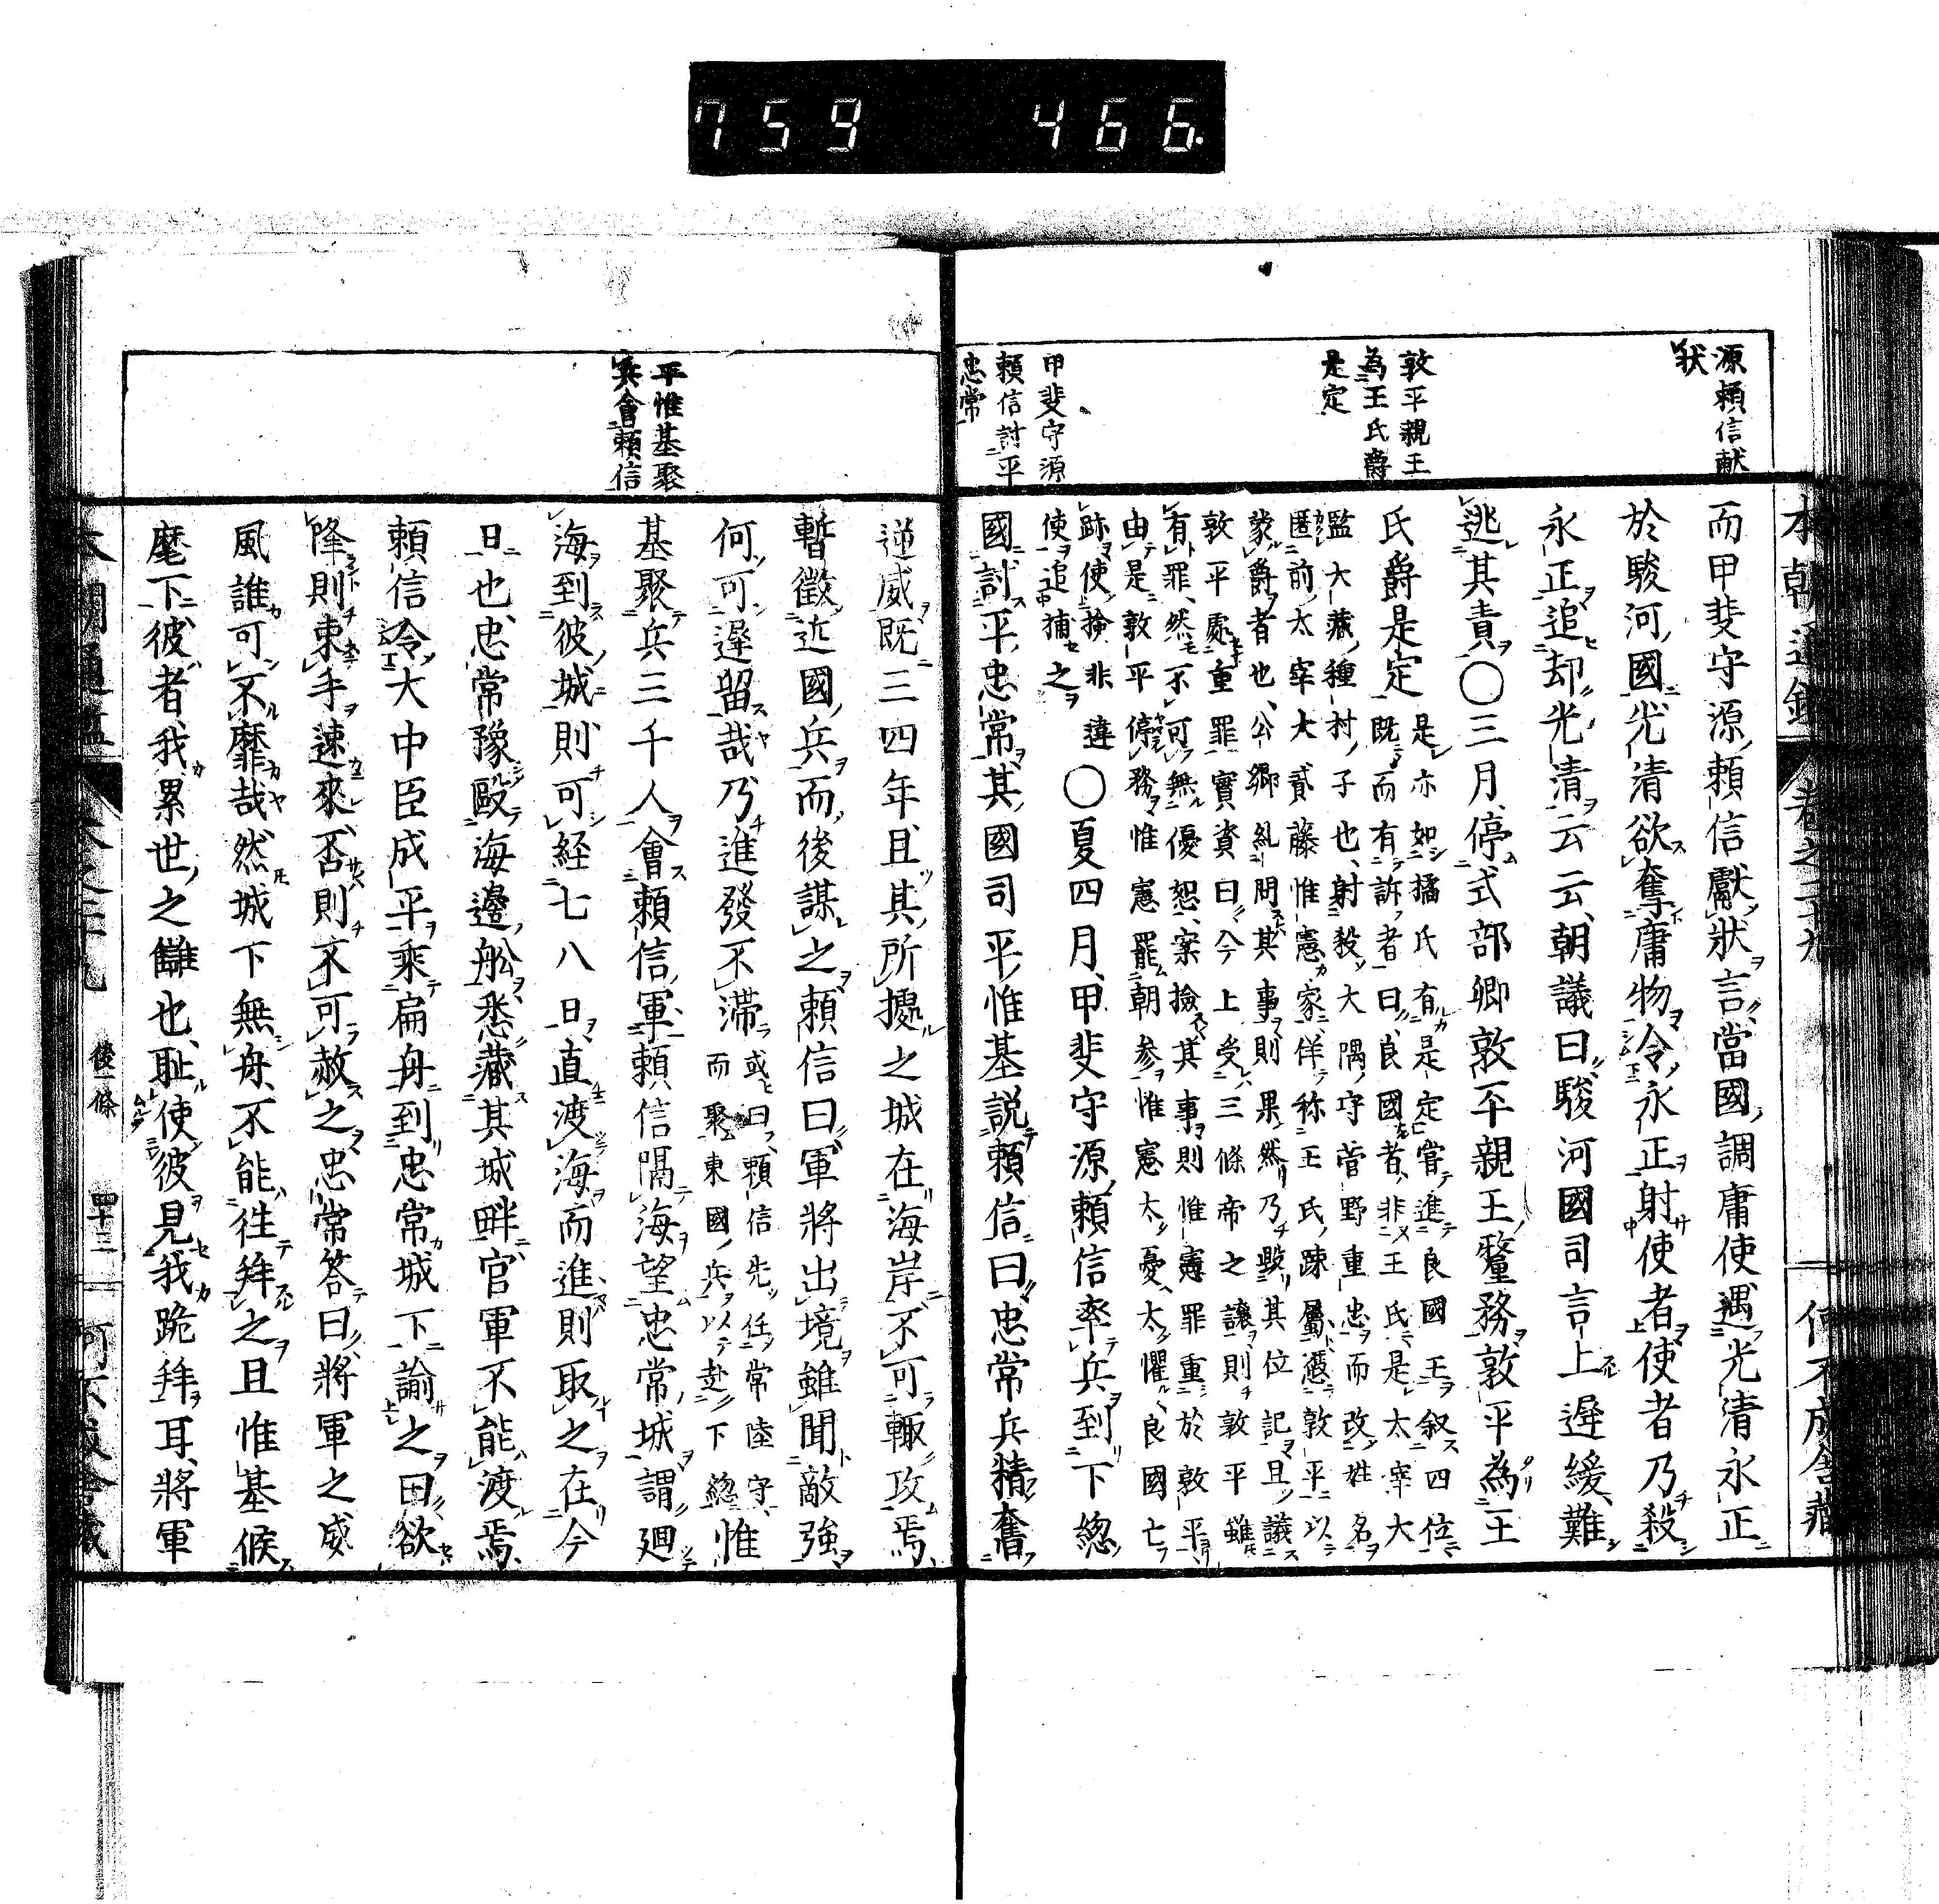 759 466.
本朝通鑑 卷之二十九 何不成舍藏
源頼信献
状
敦平親王
為王氏爵
是定
甲斐守源
頼信討平
忠常
而甲斐守源頼信獻状言當國調庸使遇光清永正
於駿河國光清欲奪庸物令永正射使者使者乃殺
永正追却光清云云朝議曰駿河國司言上遲緩難
逃其責○三月停式部卿敦平親王釐務敦平為王
氏爵是定
是亦如橘氏有是定嘗進良國王叙四位
既而有訴者曰良國者非王氏是太宰大
監大藏種材子也射殺大隅守菅野重忠而改姓名
匿前太宰大貳藤惟憲家佯称王氏踈屬憑敦平以
蒙爵者也公卿糺問其事則果然乃毀其位記且議
敦平處重罪實資曰今上受三條帝之讓則敦平雖
有罪然不可無優恕案撿其事則惟憲罪重於敦平
由是敦平停務惟憲罷朝参惟憲太憂太懼良國亡
跡使撿非違
使追捕之
○夏四月甲斐守源頼信率兵到下總
國討平忠常其國司平惟基説頼信曰忠常兵精奮
平惟基聚
兵會頼信
逆威既三四年且其所據之城在海岸不可輙攻焉
暫徴近國兵而後謀之頼信曰軍將出境雖聞敵強
何可遲留哉乃進發不滞
或曰頼信先任常陸守
而聚東國兵以赴下總
惟
基聚兵三千人會頼信軍頼信隔海望忠常城謂廻
海到彼城則可経七八日直渡海而進則取之在今
日也忠常豫毆海邊舩悉藏其城畔官軍不能渡焉
頼信令大中臣成平乘扁舟到忠常城下諭之曰欲
降則束手速來否則不可赦之忠常答曰將軍之威
風誰可不靡哉然城下無舟不能往拜之且惟基候
麾下彼者我累世之讎也耻使彼見我跪拜耳將軍
後一條 四十三